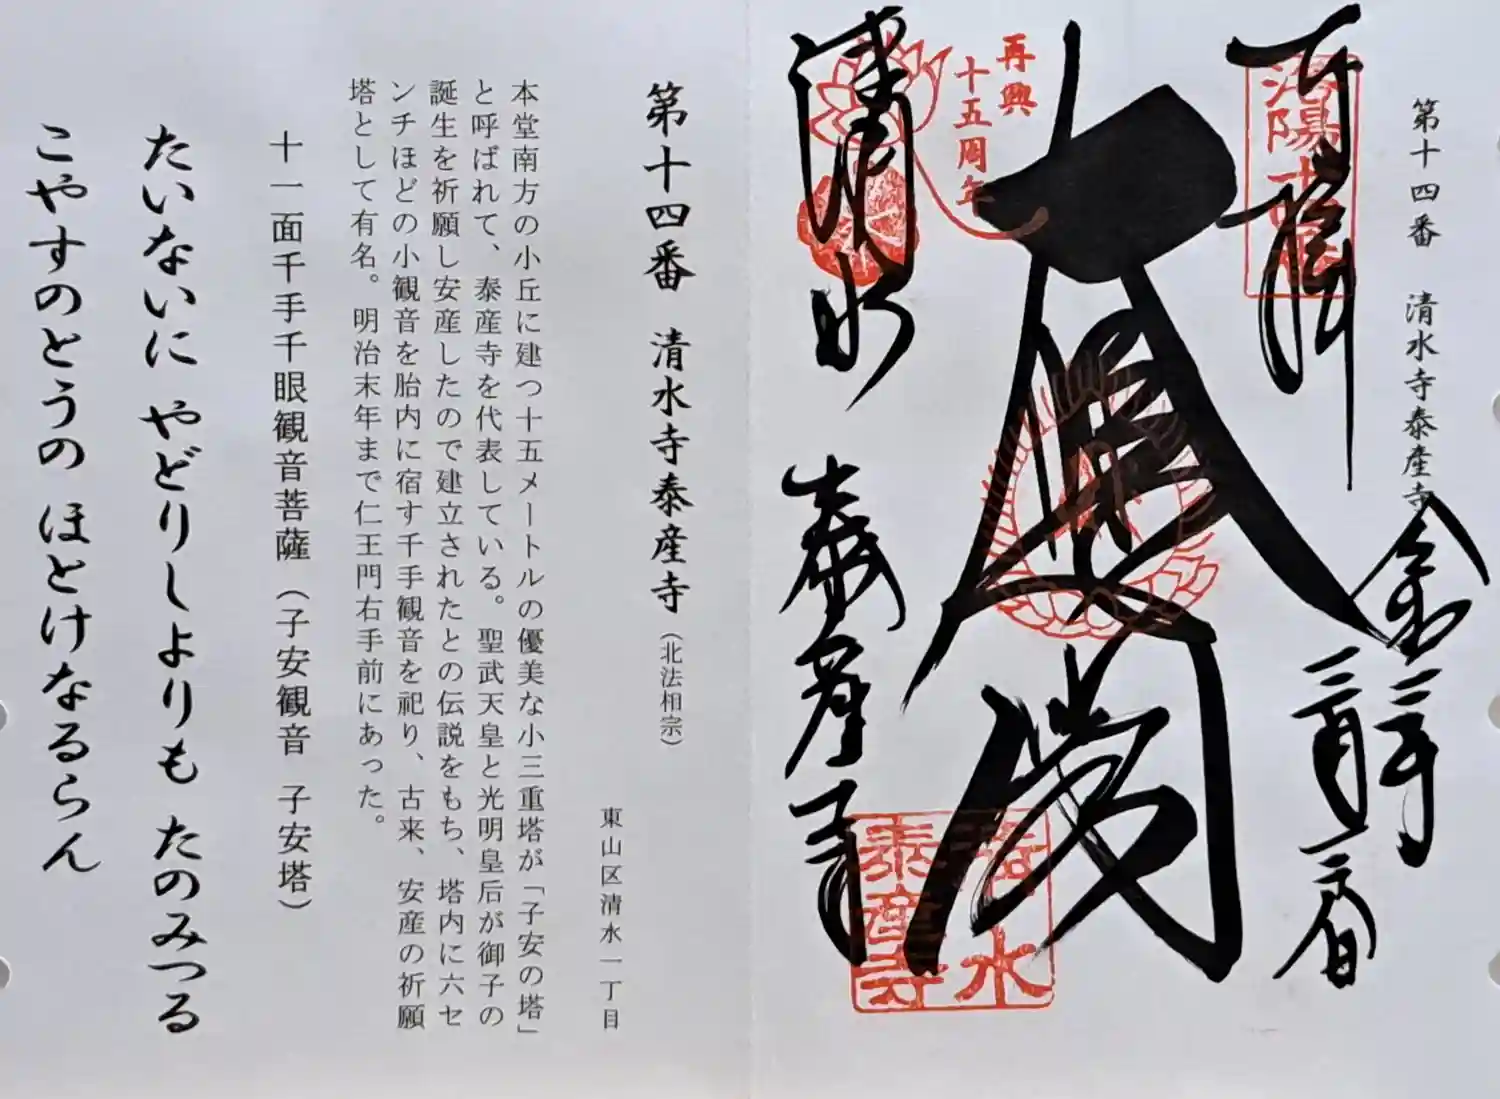 第十四番 清水寺泰産寺
奉拝
洛陽十四番
令和二年
三月二六日
大悲閣
再興
十五周年
清水
泰産寺
清水
泰産寺
第十四番 清水寺泰産寺(北法相宗)
東山区清水一丁目
本堂南方の小丘に建つ十五メートルの優美な小三重塔が「子安の塔」
と呼ばれて、泰産寺を代表している。聖武天皇と光明皇后が御子の
誕生を祈願し安産したので建立されたとの伝説をもち、塔内に六セ
ンチほどの小観音を胎内に宿す千手観音を祀り、古来、安産の祈願
塔として有名。明治末年まで仁王門右手前にあった。
十一面千手千眼観音菩薩(子安観音 子安塔)
たいないに やどりしよりも たのみつる
こやすのとうの ほとけなるらん